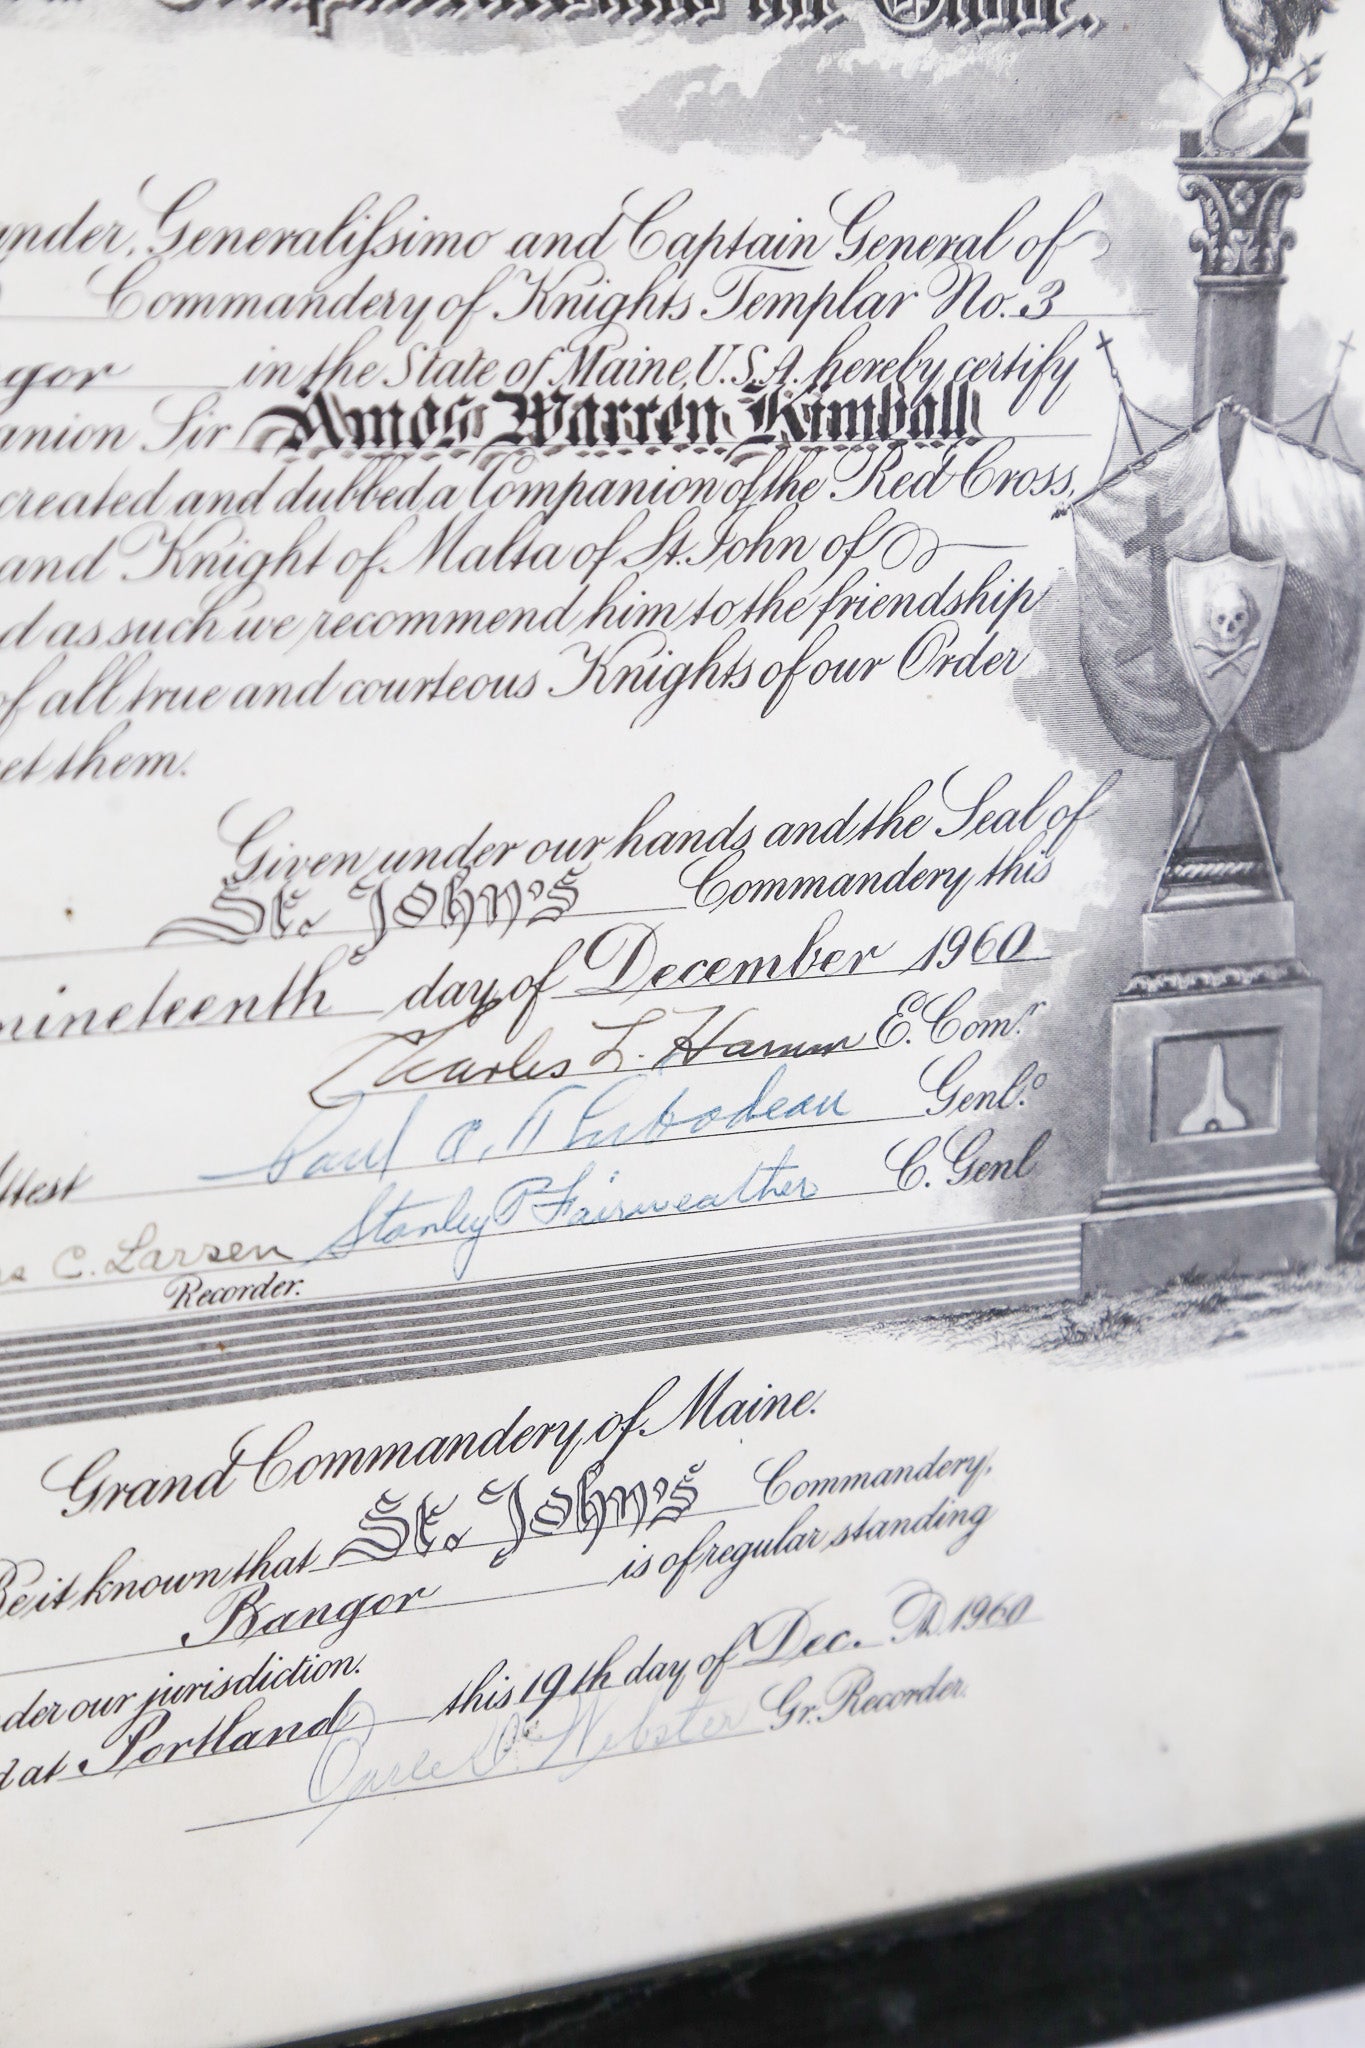 the Order.
ander, Generalissimo and Captain General of
Commandery of Knights Templar No. 3
gor in the State of Maine, U.S.A. hereby certify
anion Sir Amos Warren Kimball
created and dubbed a Companion of the Red Cross,
and Knight of Malta of St. John of
d as such we recommend him to the friendship
of all true and courteous Knights of our Order
et them.
Given under our hands and the Seal of
St. John's Commandery this
nineteenth day of December 1960
Charles L. Hamm E. Com.r
Paul A. Thibodeau Genl.o
ttest
Stanley P. Fairweather C. Genl
s C. Larsen
Recorder.
Grand Commandery of Maine.
Be it known that St. John's Commandery,
Bangor is of regular standing
der our jurisdiction.
d at Portland this 19th day of Dec. AD. 1960
Webster Gr. Recorder.